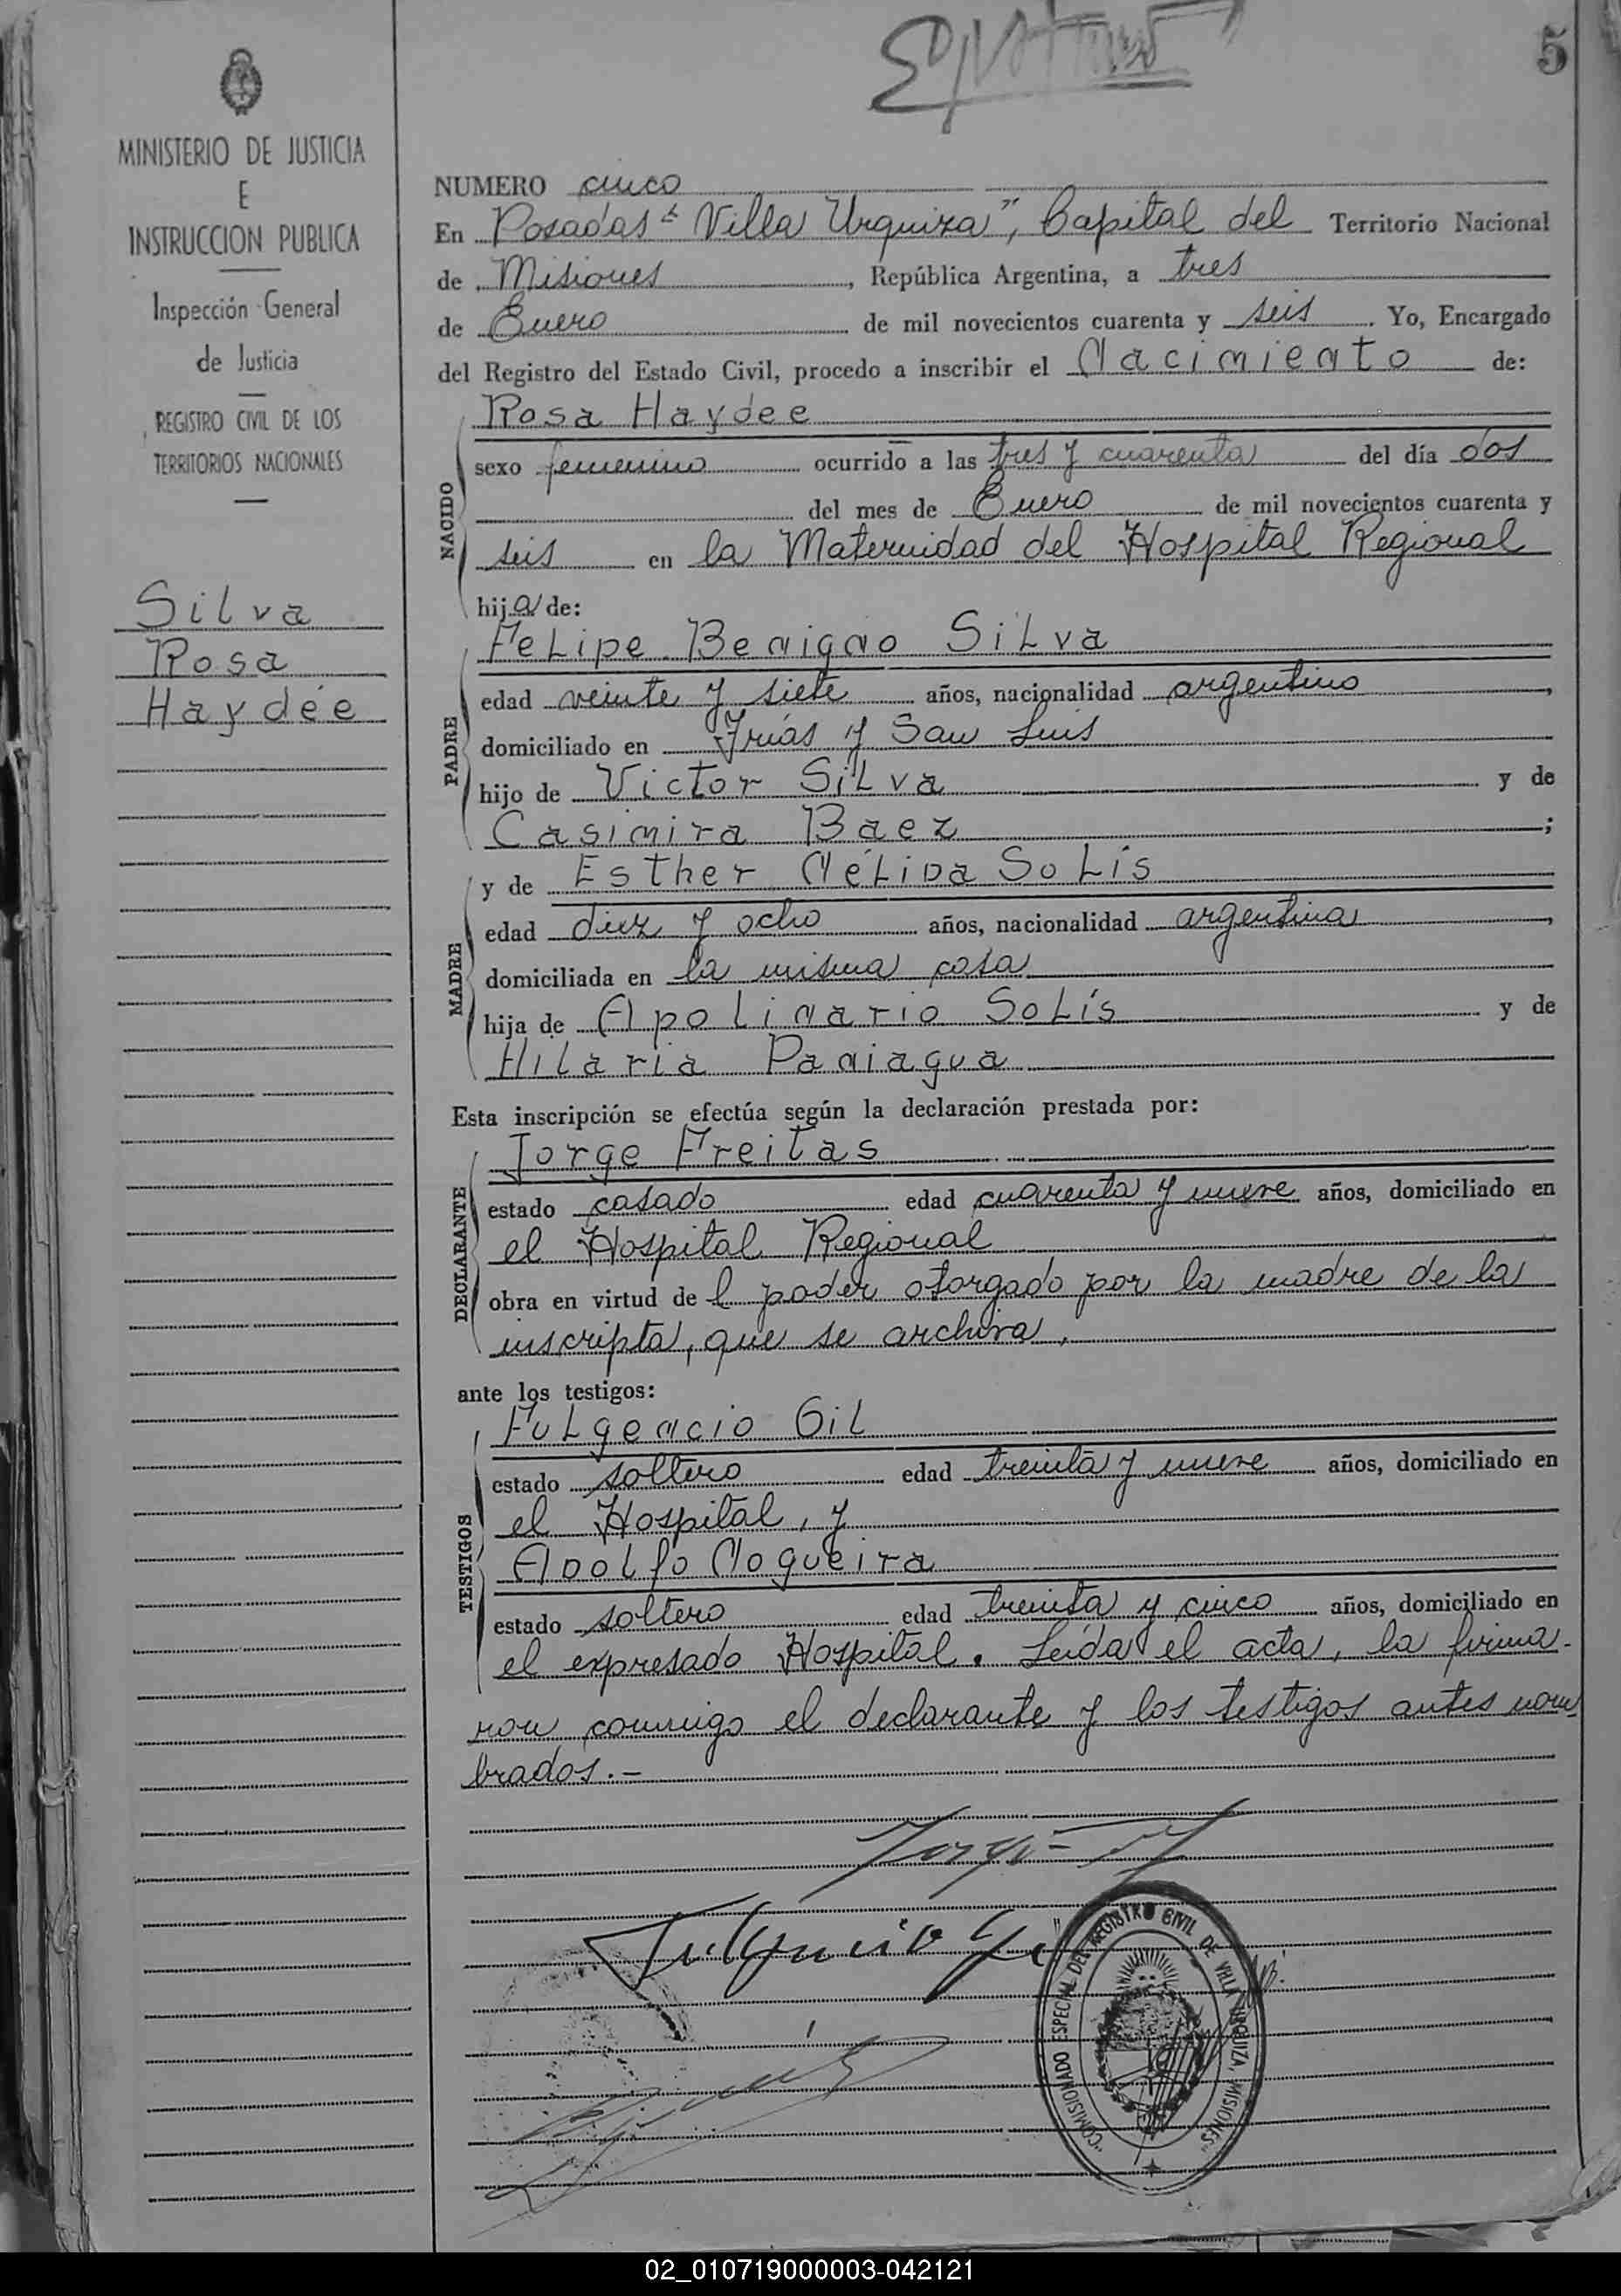 5
MINISTERIO DE JUSTICIA
E
INSTRUCCION PUBLICA
Inspección General
de Justicia
REGISTRO CIVIL DE LOS
TERRITORIOS NACIONALES
Silva
Rosa
Haydée
NUMERO cinco
En Posadas "Villa Urquiza", Capital del Territorio Nacional
de Misiones, República Argentina, a tres
de Enero de mil novecientos cuarenta y seis. Yo, Encargado
del Registro del Estado Civil, procedo a inscribir el Nacimiento de:
NACIDO
Rosa Haydee
sexo femenino ocurrido a las tres y cuarenta del día dos
del mes de Enero de mil novecientos cuarenta y
seis en la Maternidad del Hospital Regional
hija de:
PADRE
Felipe Benigno Silva
edad veinte y siete años, nacionalidad argentino,
domiciliado en Frías y San Luis
hijo de Victor Silva y de
Casimira Baez;
MADRE
y de Esther Nélida Solís
edad diez y ocho años, nacionalidad argentina,
domiciliada en la misma casa
hija de Apolinario Solís y de
Hilaria Paniagua
Esta inscripción se efectúa según la declaración prestada por:
DECLARANTE
Jorge Freitas
estado casado edad cuarenta y nueve años, domiciliado en
el Hospital Regional
obra en virtud del poder otorgado por la madre de la
inscripta, que se archiva,
ante los testigos:
TESTIGOS
Fulgencio Gil
estado soltero edad treinta y nueve años, domiciliado en
el Hospital, y
Adolfo Nogueira
estado soltero edad treinta y cinco años, domiciliado en
el expresado Hospital. Leída el acta, la firma-
ron conmigo el declarante y los testigos antes nom
brados.-
Jorge
Fulgencio Gil
"COMISIONADO ESPECIAL DEL REGISTRO CIVIL DE VILLA URQUIZA, MISIONES"
02_010719000003-042121